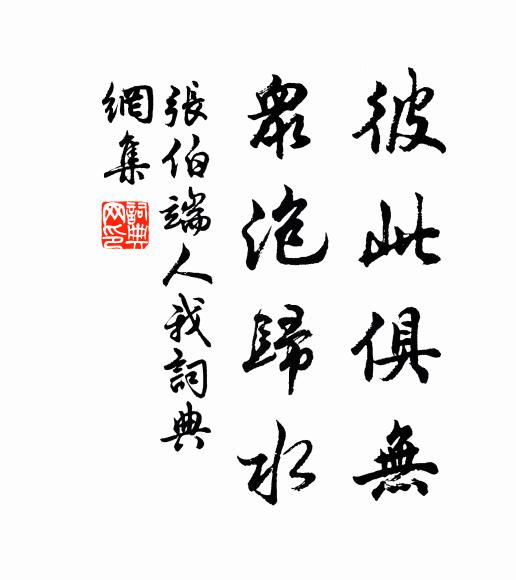 彼此俱無
眾泡歸水
張伯端人我詞典
網集
詞典網印